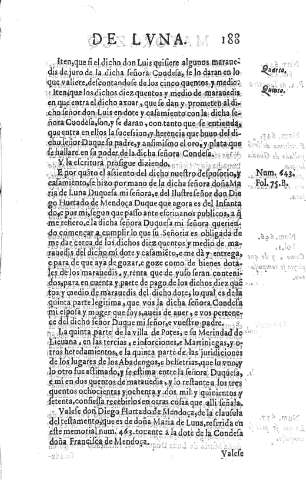 DE LVNA. 188
Iten, que si el dicho don Luis quisiere algunos maraue-
dis de juro de la dicha señora Condesa, se lo daran en lo
que valiere, descontandose de los cinco quentos y medio.
Iten, que los dichos diez quentos y medio de marauedis,
en que entra el dicho axuar, que se dan y prometen al di-
cho señor don Luis en dote y casamiento con la dicha se-
ñora Condesa, son, y se daran, con tanto que se entienda,
que entra en ellos la sucession, y herencia que huuo del di-
cho señor Duque su padre, y ansimismo el oro, y plata que
se hallare en su poder de la dicha señora Condesa.
Quarta,
Quinta,
Y la escritura prosigue diziendo.
E por quāto el assiento del dicho nuestro desposorio, y
casamiento, se hizo por mano de la dicha señora doña Ma-
ria de Luna Duquesa mi señora, e del Ilustre señor don Die-
go Hurtado de Mendoça Duque que agora es del Infanta-
do, e por mi, segun que passò ante escriuanos publicos, a q̄
me refiero, e la dicha señora Duquesa mi señora querien-
do començar a cumplir lo que su Señoria es obligada de
me dar cerca de los dichos diez quentos y medio de ma-
rauedis del dicho mi dote y casamiento, e me dà, y entrega,
e para de que aya de gozar, e goze como de bienes dota-
les de los marauedis, y renta que de yuso seran conteni-
dos, para en cuenta y parte de pago de los dichos diez quē
tos y medio de marauedis del dicho dote, lo qual es de la
quinta parte legitima, que vos la dicha señora Condesa
mi esposa y muger que soys, aueis de auer, e vos pertene-
ce del dicho señor Duque mi señor, vuestro padre.
Num. 643.
Fol. 75. B.
La quinta parte de la villa de Potes, e su Merindad de
Lieuana, en las tercias, e inforciones, e Martiniegas, y o-
tros heredamientos, e la quinta parte de las jurisdiciones
de los lugares de los Abadengos, e behetrias, que lo vno, y
lo otro fue astimado, y se estima entre la señora Duquesa,
e mi en dos quentos de marauedis, y lo restante a los tres
quentos ochocientos y ochenta y dos mil y quinientos y
setenta, confiessa recebirlos en otras cosas que alli señala.
Valese don Diego Hurtado de Mendoça, de la clausula
del testamento, que es de doña Maria de Luna, referida en
este memorial num. 463. tocante à la dote de la Condesa
doña Francisca de Mendoça.
Valese